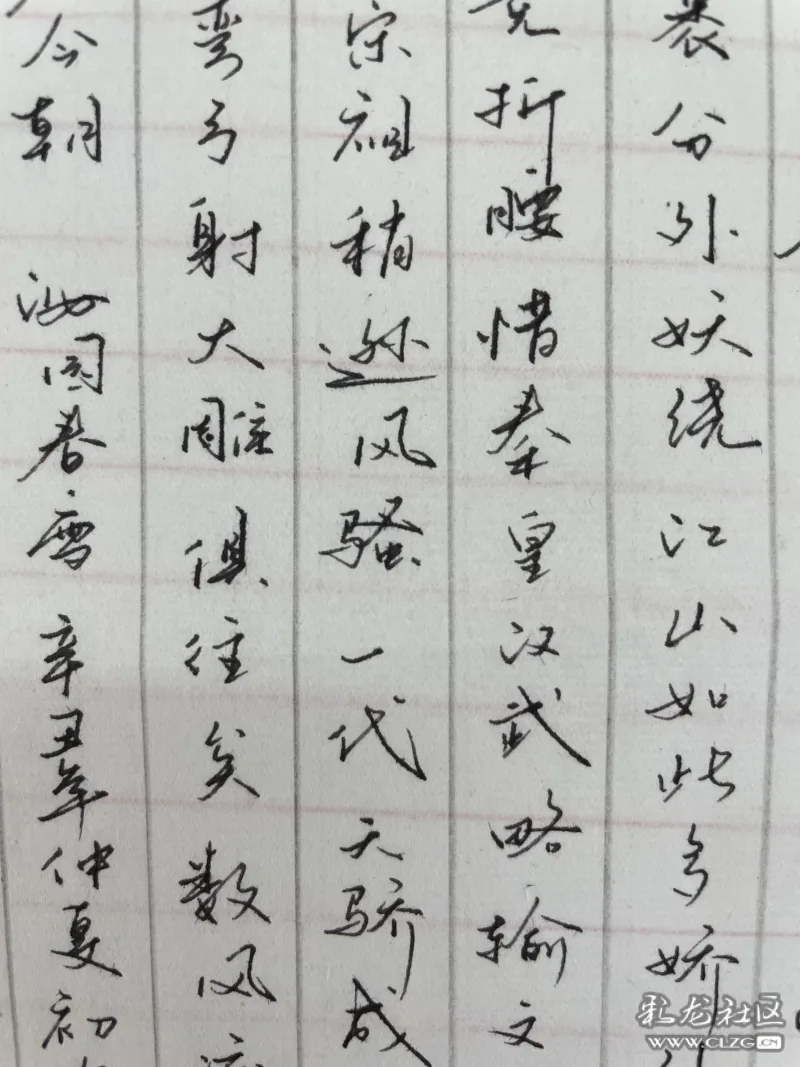 裹分外妖绕江山如此多娇
折腰惜秦皇汉武略输文
宋祖稍逊风骚一代天骄成
弯弓射大雕俱往矣数风流
今朝 沁园春雪 辛丑年仲夏初
彩龙社区
WWW.CLZG.CN